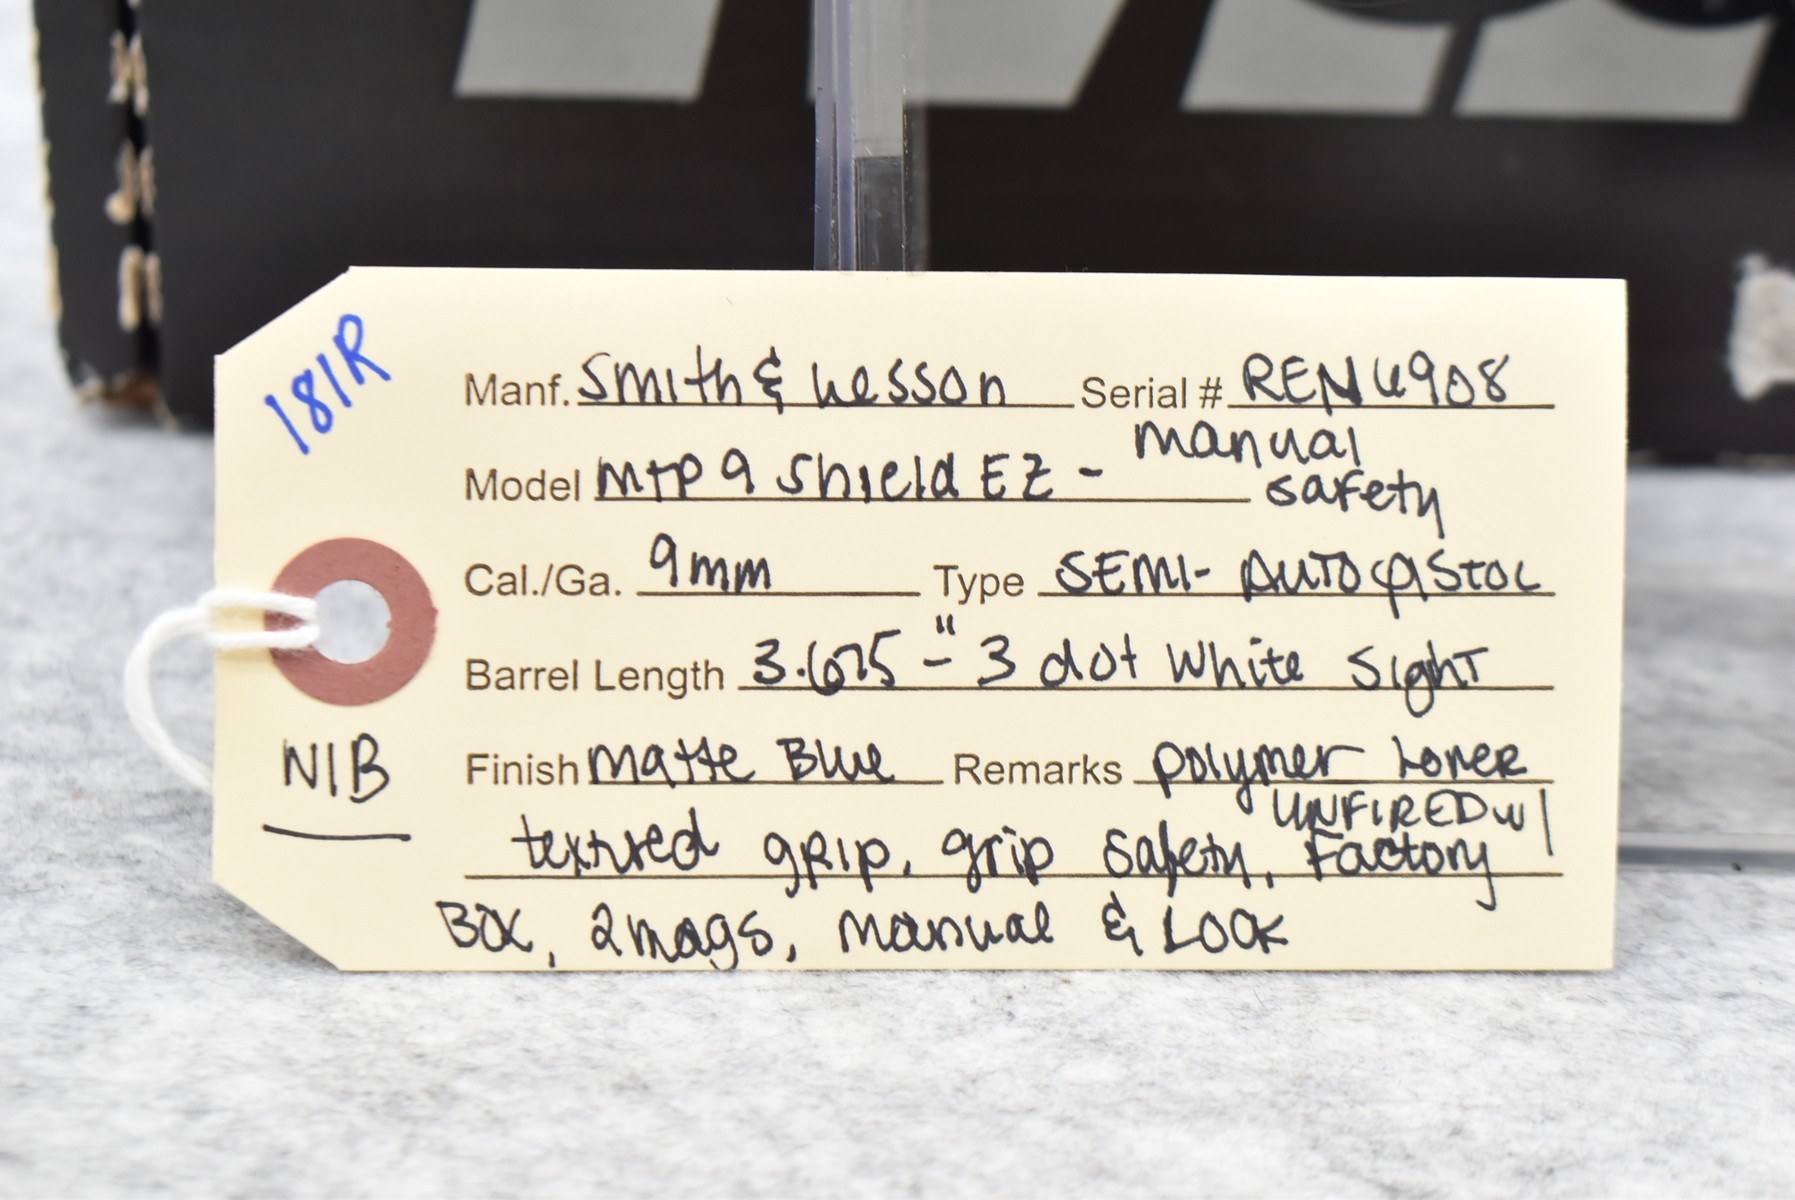 181R
Manf. Smith & Wesson Serial # REN4908
Model M+P 9 Shield EZ - manual safety
Cal./Ga. 9mm Type SEMI-AUTO PISTOL
Barrel Length 3.675" - 3 dot white sight
NIB
Finish Matte Blue Remarks polymer lower
textured grip, grip safety, UNFIRED w/ Factory
Box, 2 mags, manual & Lock